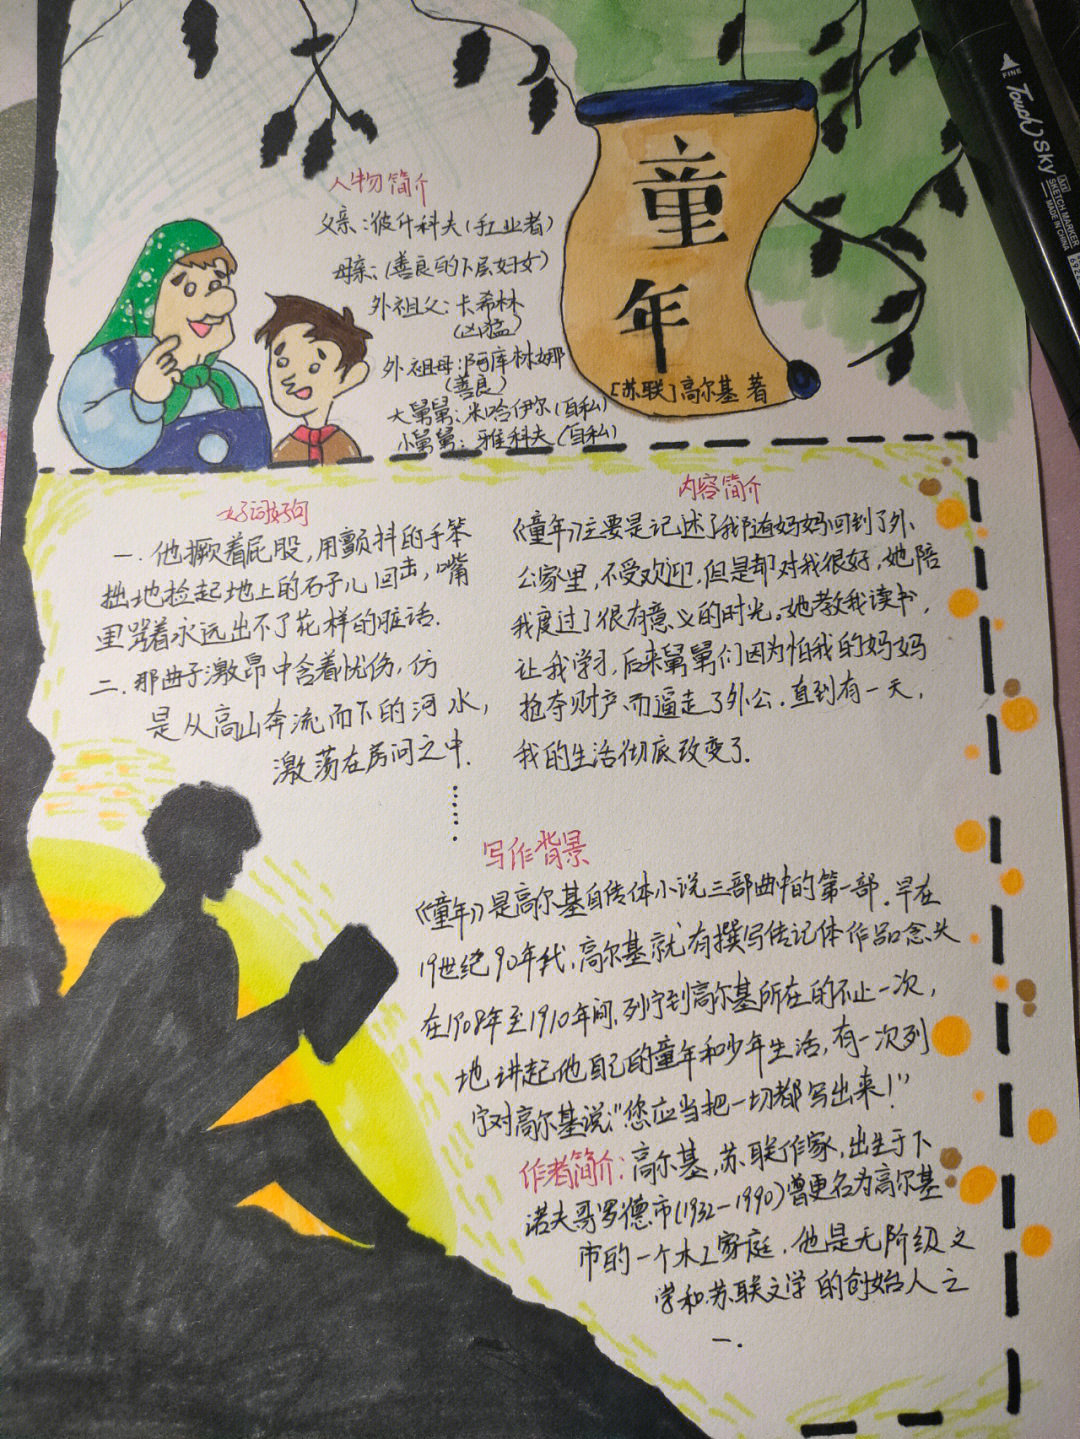 童
年
[苏联]高尔基 著
人物简介
父亲:彼什科夫(手工业者)
母亲:(善良的下层妇女)
外祖父:卡希林
(凶猛)
外祖母:阿库林娜
(善良)
大舅舅:米哈伊尔(自私)
小舅舅:雅科夫(自私)
好词好句
一.他撅着屁股,用颤抖的手笨
拙地捡起地上的石子儿回击,嘴
里骂着永远出不了花样的脏话.
二.那曲子激昂中含着忧伤,仿
是从高山奔流而下的河水,
激荡在房间之中.
......
内容简介
《童年》主要是记述了我随妈妈回到了外
公家里,不受欢迎.但是却对我很好,她陪
我度过了很有意义的时光。她教我读书,
让我学习,后来舅舅们因为怕我的妈妈
抢夺财产而逼走了外公.直到有一天,
我的生活彻底改变了.
写作背景
《童年》是高尔基自传体小说三部曲中的第一部.早在
19世纪90年代,高尔基就有撰写传记体作品念头
在1908年至1910年间,列宁到高尔基所在的不止一次,
地讲起他自己的童年和少年生活,有一次列
宁对高尔基说:"您应当把一切都写出来!"
作者简介:高尔基,苏联作家,出生于下
诺夫哥罗德市(1932-1990)曾更名为高尔基
市的一个木工家庭.他是无阶级文
学和苏联文学的创始人之
一.
FINE
Touch Sky
SKETCH MARKER
MADE IN CHINA